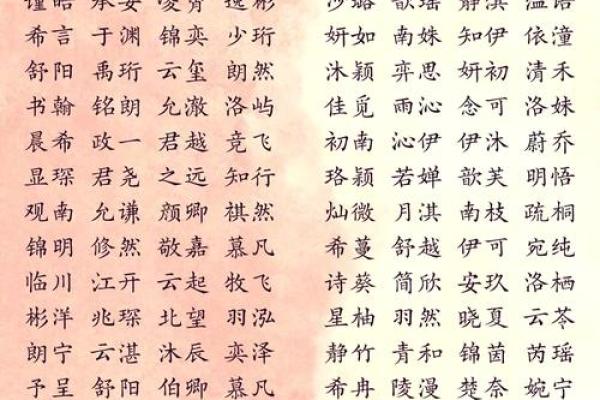 谨皓 承安 凌霄 逸彬 沙璐 歆瑶 静淇 温语
希言 于渊 锦奕 少珩 妍如 南姝 知伊 依潼
舒阳 禹珩 云玺 朗然 沐颖 弈思 妍初 清禾
书翰 铭朗 允澈 洛屿 佳觅 雨沁 念可 洛姝
晨希 政一 君越 竞飞 初南 沁伊 伊沐 蔚乔
显琛 君尧 之远 知行 珞颖 若婵 歆芙 明悟
观南 允谦 颜卿 祺然 灿微 月淇 南枝 疏桐
锦明 修然 敬嘉 慕凡 希蔓 舒越 伊可 宛纯
临川 江开 云起 牧飞 诗葵 简欣 安玖 洛栖
彬洋 兆琛 北望 羽泓 星柚 羽然 晓夏 云苓
朗宁 云湛 沐辰 奕泽 静竹 青和 锦茵 芮瑶
予呈 舒阳 伯卿 慕凡 希冉 陵漫 楚奈 婉宁